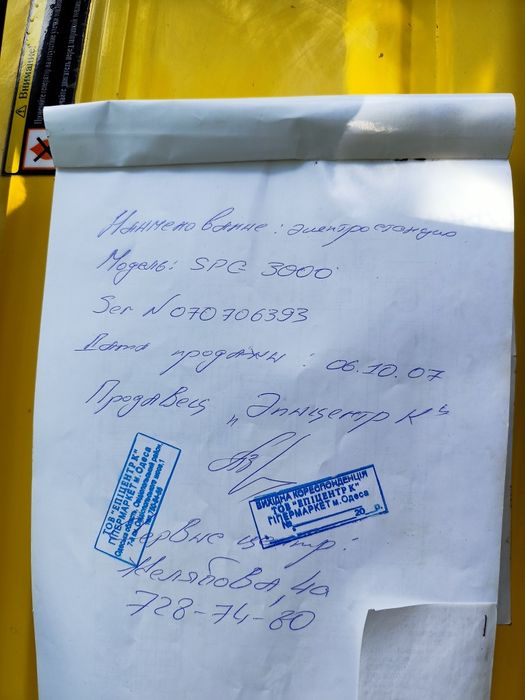 Внимание!
Наименование: электростанция
Модель: SPG 3000
Ser N 070706393
Дата продажи: 06.10.07
Продавец „Эпицентр К"
ТОВ "ЕПІЦЕНТР К"
ГІПЕРМАРКЕТ м. Одеса
ВИХІДНА КОРЕСПОНДЕНЦІЯ
ТОВ "ЕПІЦЕНТР К"
ГІПЕРМАРКЕТ м. Одеса
№ 20 р.
центр:
Желябова, 4а
728-74-80